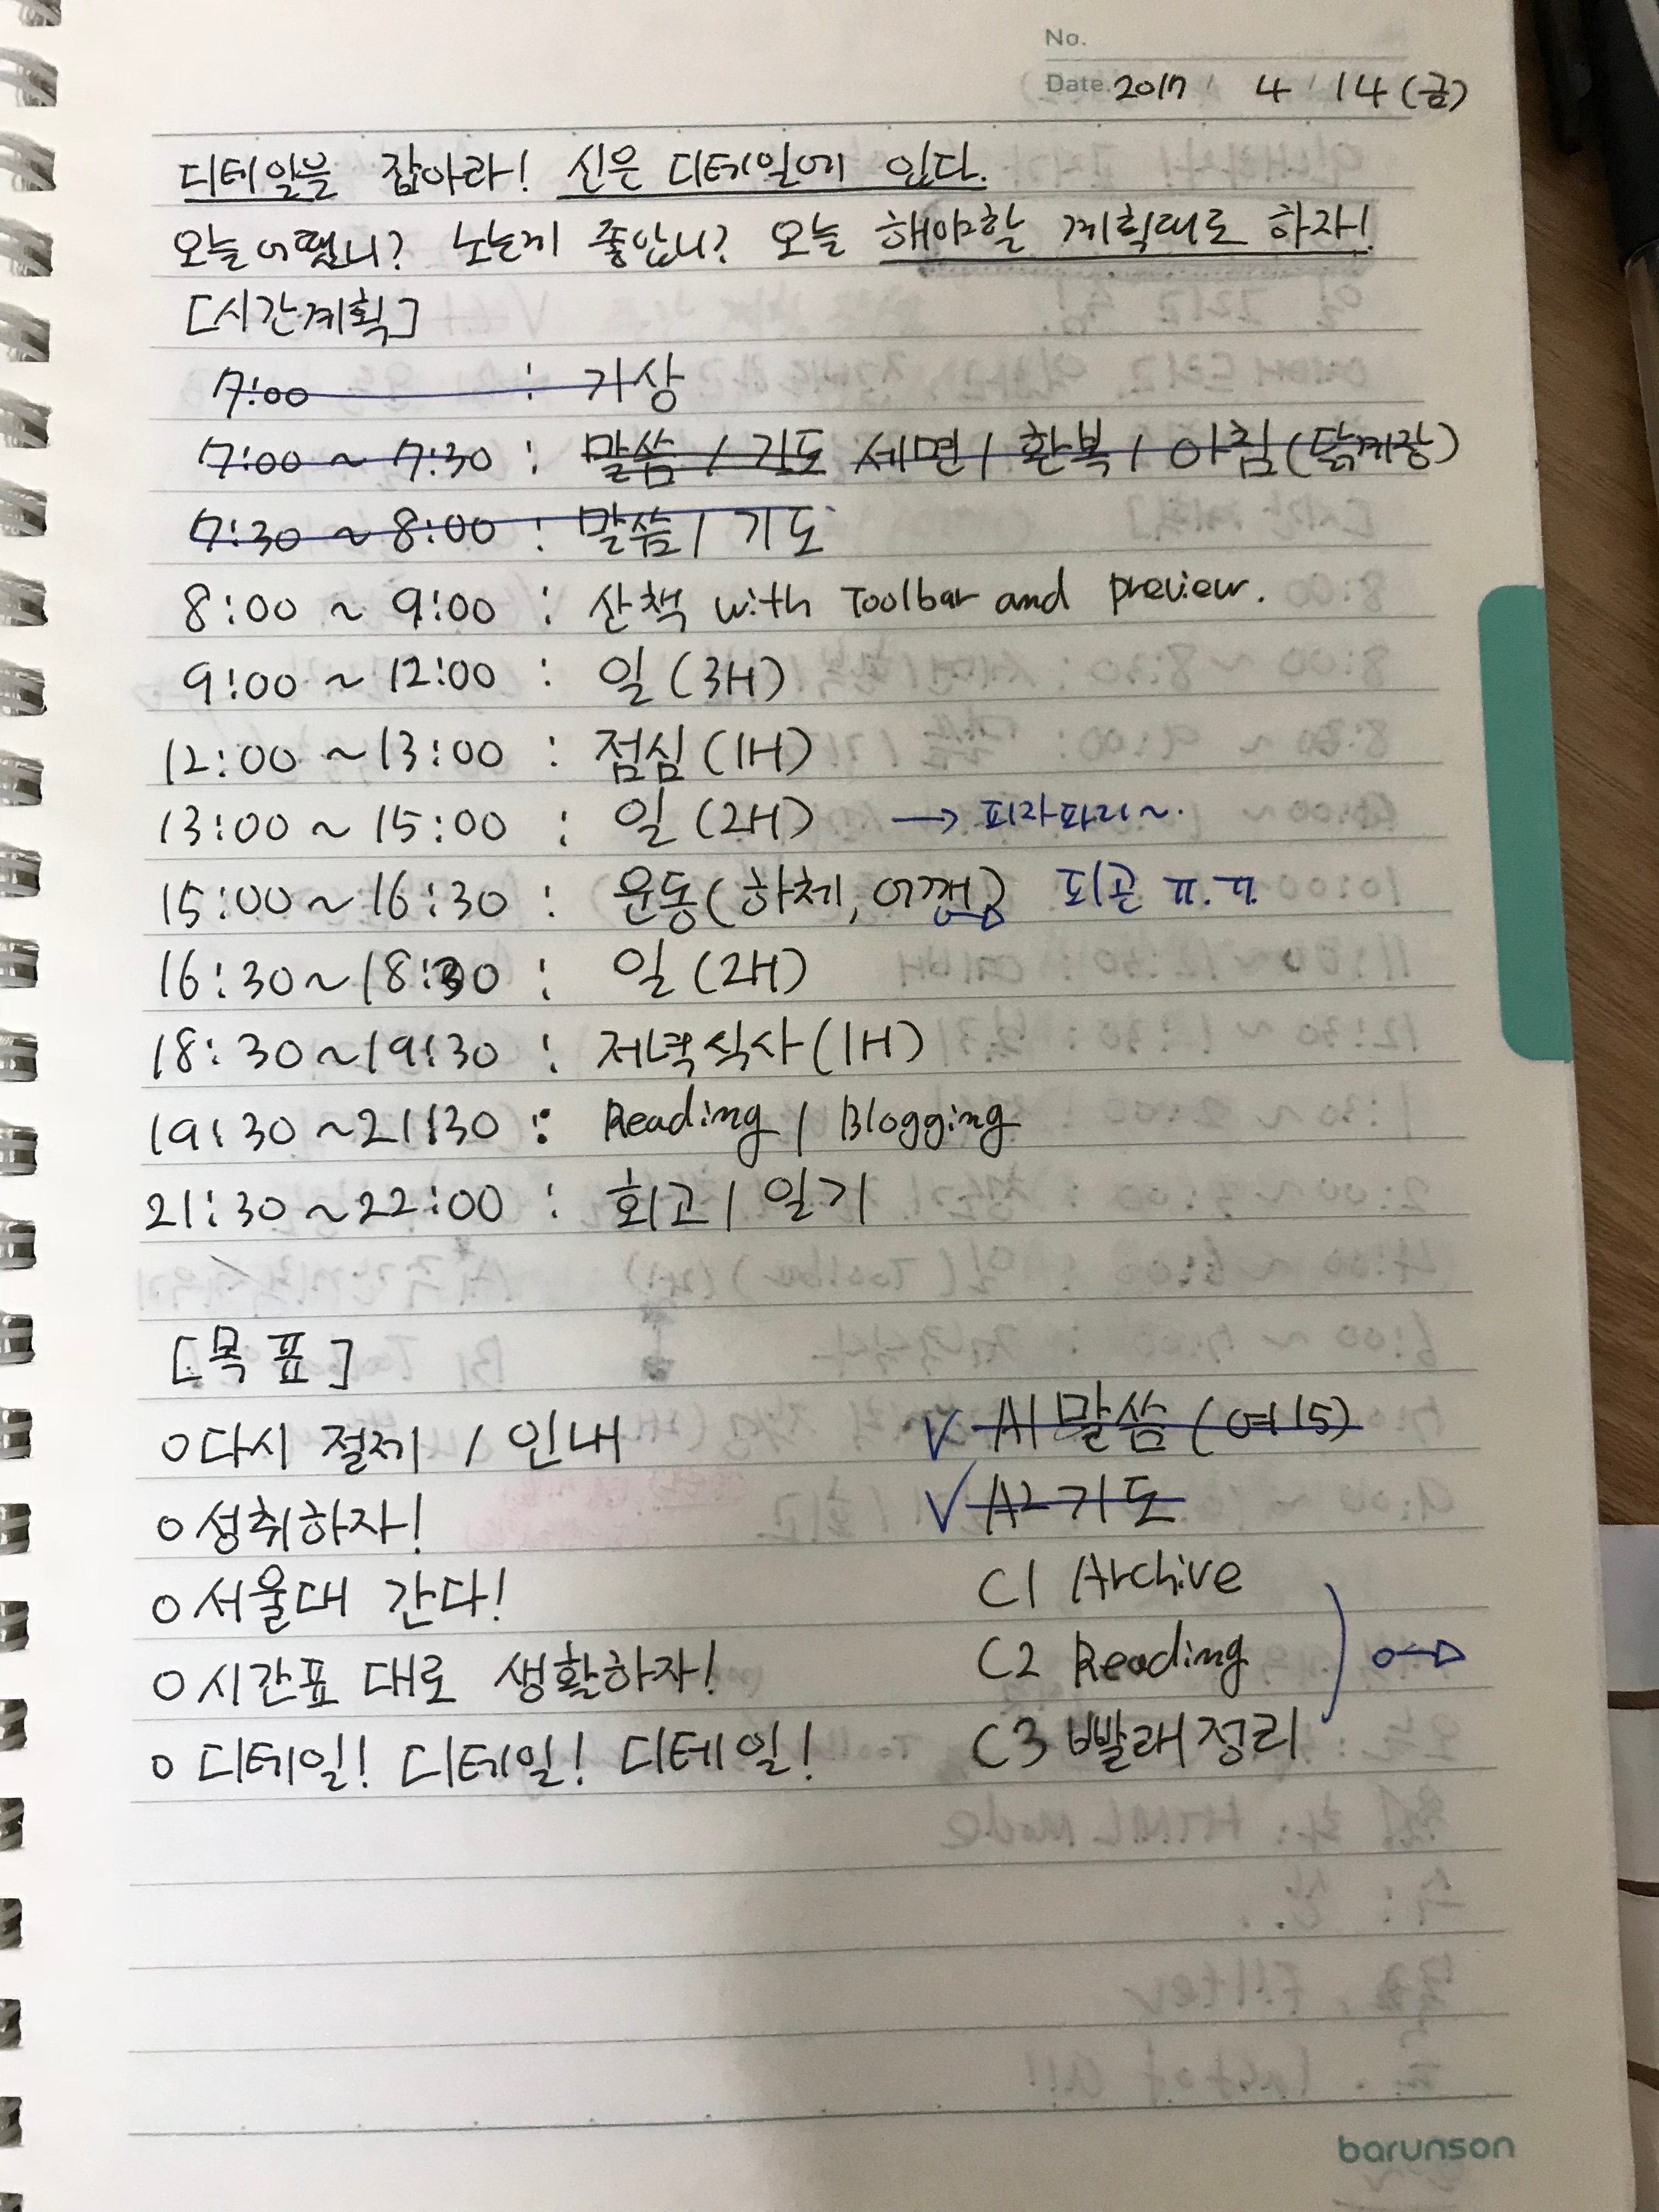 No.
Date. 2017 4 14 (금)
디테일을 잡아라! 신은 디테일에 있다.
오늘 어땠니? 노는게 좋았니? 오늘 해야할 계획대로 하자!
[시간계획]
7:00 : 기상
7:00 ~ 7:30 : 말씀 / 기도 세면 / 환복 / 아침 (닭계장)
7:30 ~ 8:00 : 말씀 / 기도
8:00 ~ 9:00 : 산책 with Toolbar and preview.
9:00 ~ 12:00 : 일 (3H)
12:00 ~ 13:00 : 점심 (1H)
13:00 ~ 15:00 : 일 (2H) → 피자파리~.
15:00 ~ 16:30 : 운동 (하체, 어깨) 피곤 ㅠ.ㅠ
16:30 ~ 18:30 : 일 (2H)
18:30 ~ 19:30 : 저녁식사 (1H)
19:30 ~ 21:30 : Reading / Blogging
21:30 ~ 22:00 : 회고 / 일기
[목표]
o 다시 절제 / 인내 V A1 말씀 (에15)
o 성취하자! V A2 기도
o 서울대 간다! C1 Archive
o 시간표 대로 생활하자! C2 Reading
o 디테일! 디테일! 디테일! C3 빨래정리
barunson